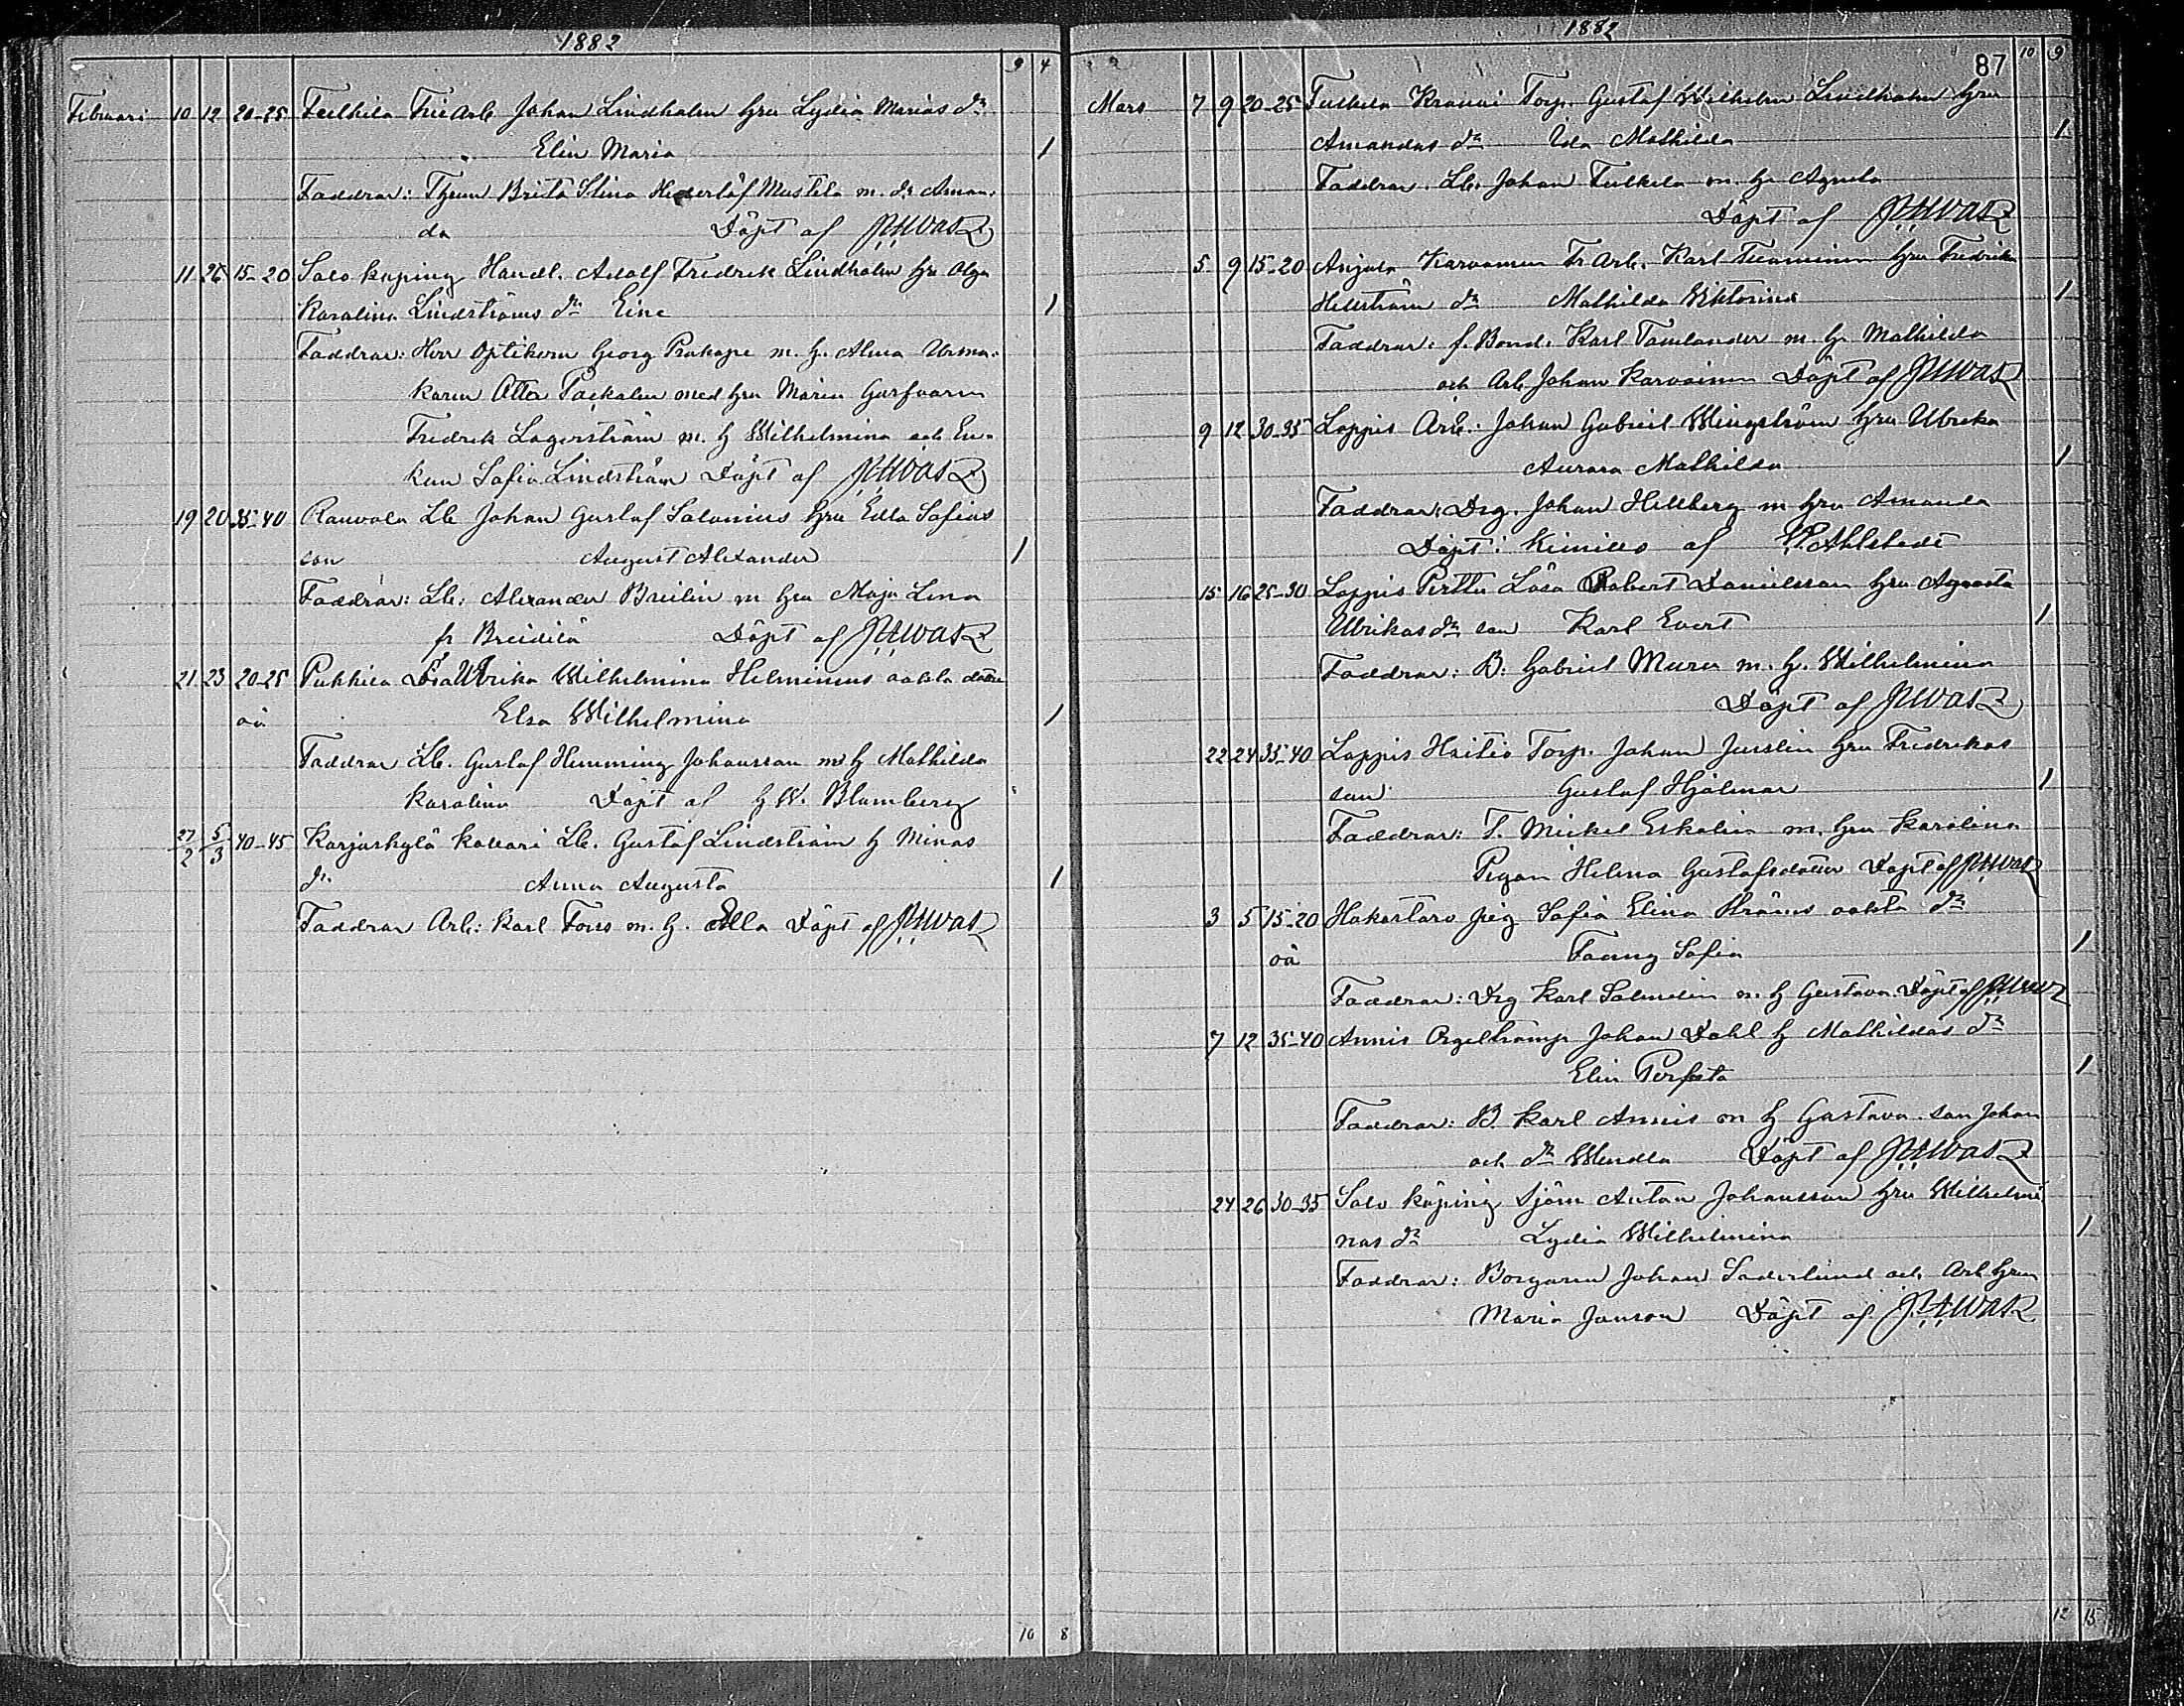 1882
9 4
Februari 10 12 20-25 Johan Lindholm hru Lydia Marias dr.
Elin Maria 1
Faddrar: Brita Stina Mustela m. dr. Aman-
da Döpt af
11 26 15-20 Salo köping Handl. Adolf Fredrik Lindholm hru Olga
Karolina Lindströms dr Eine 1
Faddrar: Herr Optikern Georg Prokope m. h. Alma Urma-
karen Otto med hru Maria Garfvaren
Fredrik Lagerström m. h Wilhelmina och En-
kan Sofia Lindström Döpt af
19 20 35-40 Rauvola Lb Johan Gustaf Salonius hru Edla Sofias
son August Alexander 1
Faddrar: Lb: Alexander Breilin m hru Maja Lena
fr Döpt af
21 23 20-25 Pukkila Ulrika Wilhelmina Helminens oakta dotter
oä Elsa Wilhelmina 1
Faddrar Lb. Gustaf Hemming Johansson m h Mathilda
Karolina Döpt af G W. Blomberg
27/2 5/3 40-45 Karjaskylä Lb. Gustaf Lindström h Minas
dr. Anna Augusta 1
Faddrar Arb: Karl Forss m. h. Edla Döpt af
10 8
1882
87 10 9
Mars 7 9 20-25 Torp. Gustaf Wilhelm Lindholm hru
Amandas dr Ida Mathilda 1
Faddrar. Lb. Johan m. h Agneta
Döpt af
5 9 15-20 Anjala Karvonen Fr Arb. Karl hru Fredrika
Hellström dr Mathilda Viktorina 1
Faddrar: f. Bond. Karl Tamlander m. h Mathilda
och Arb Johan Karvoinen Döpt af
9 12 30-35 Loppis Arb. Johan Gabriel Wingström hru Ulrika
Aurora Mathilda 1
Faddrar: Drg. Johan Hellberg m hru Amanda
Döpt i Kimito af Ahlstedt
15 16 25-30 Loppis Perttu Robert Danielsson hru
Ulrikas dr son Karl Evert 1
Faddrar: B. Gabriel m. h. Wilhelmina
Döpt af
22 24 35-40 Loppis Torp. Johan Juslin hru Fredrikas
son Gustaf Hjalmar 1
Faddrar: T. Mickel Eskolin m. hru Karolina
Pigan Helena Gustafsdotter Döpt af
3 5 15-20 Hakostaro pig Sofia Elina oakta dr
oä Fanny Sofia 1
Faddrar: Drg Karl Salmelin m. h Gustava. Döpt af
7 12 35-40 Annis Orgeltramp. Johan Dahl h Mathildas dr
Elin Perfeta 1
Faddrar: B. Karl Annis m h Gustava. son Johan
och dr Wendla Döpt af
24 26 30-35 Salo köping Sjöm Anton Johansson hru Wilhelmi
nas dr Lydia Wilhelmina 1
Faddrar: Borgaren Johan Söderlund och Arb hru
Maria Janson Döpt af
12 15